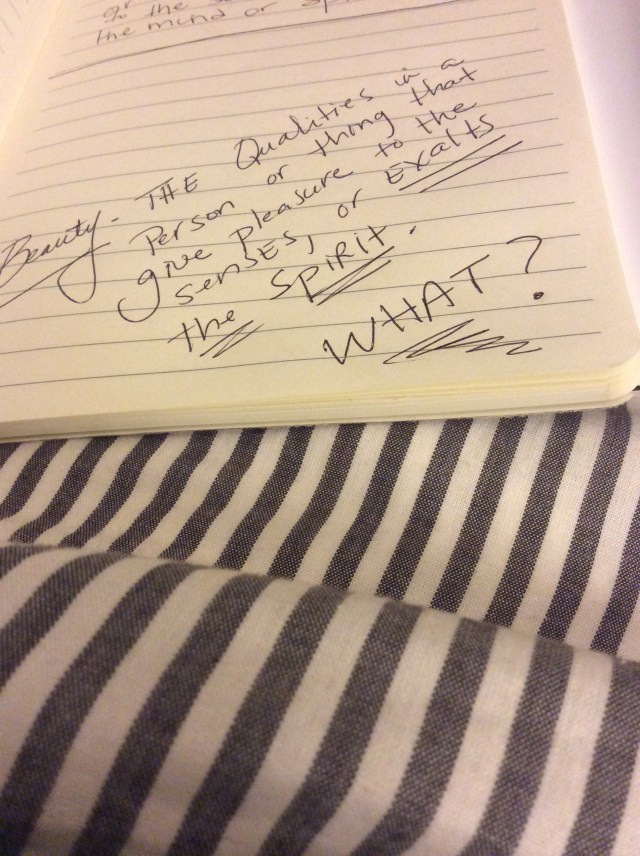 to the
the mind or
Beauty - THE Qualities in a
Person or thing that
give pleasure to the
senses, or Exalts
the SPIRIT.
WHAT?